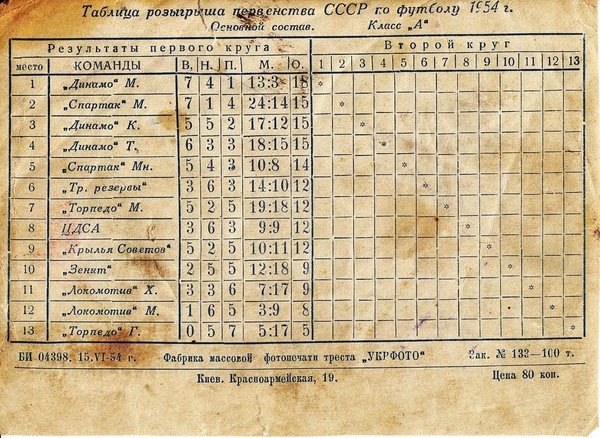 Таблица розыгрыша первенства СССР по футболу 1954 г.
Основной состав. Класс „А"
Результаты первого круга Второй круг
место КОМАНДЫ В. Н. П. М. О. 1 2 3 4 5 6 7 8 9 10 11 12 13
1 „Динамо" М. 7 4 1 13:3 18
2 „Спартак" М. 7 1 4 24:14 15
3 „Динамо" К. 5 5 2 17:12 15
4 „Динамо" Т. 6 3 3 18:15 15
5 „Спартак" Мн. 5 4 3 10:8 14
6 „Тр. резервы" 3 6 3 14:10 12
7 „Торпедо" М. 5 2 5 19:18 12
8 ЦДСА 3 6 3 9:9 12
9 „Крылья Советов" 5 2 5 10:11 12
10 „Зенит" 2 5 5 12:18 9
11 „Локомотив" Х. 3 3 6 7:17 9
12 „Локомотив" М. 1 6 5 3:9 8
13 „Торпедо" Г. 0 5 7 5:17 5
БИ 04398. 15.VI-54 г. Фабрика массовой фотопечати треста „УКРФОТО" Зак. № 132—100 т.
Киев. Красноармейская, 19. Цена 80 коп.